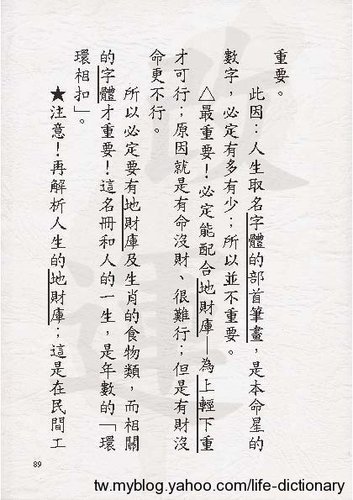 重要。
此因：人生取名字體的部首筆畫，是本命星的
數字，必定有多有少；所以並不重要。
△最重要！必定能配合地財庫—為上輕下重
才可行；原因就是有命沒財、很難行；但是有財沒
命更不行。
所以必定要有地財庫及生肖的食物類，而相關
的字體才重要！這名冊和人的一生，是年數的「環
環相扣」。
★注意！再解析人生的地財庫；這是在民間工
89
tw.myblog.yahoo.com/life-dictionary
改運